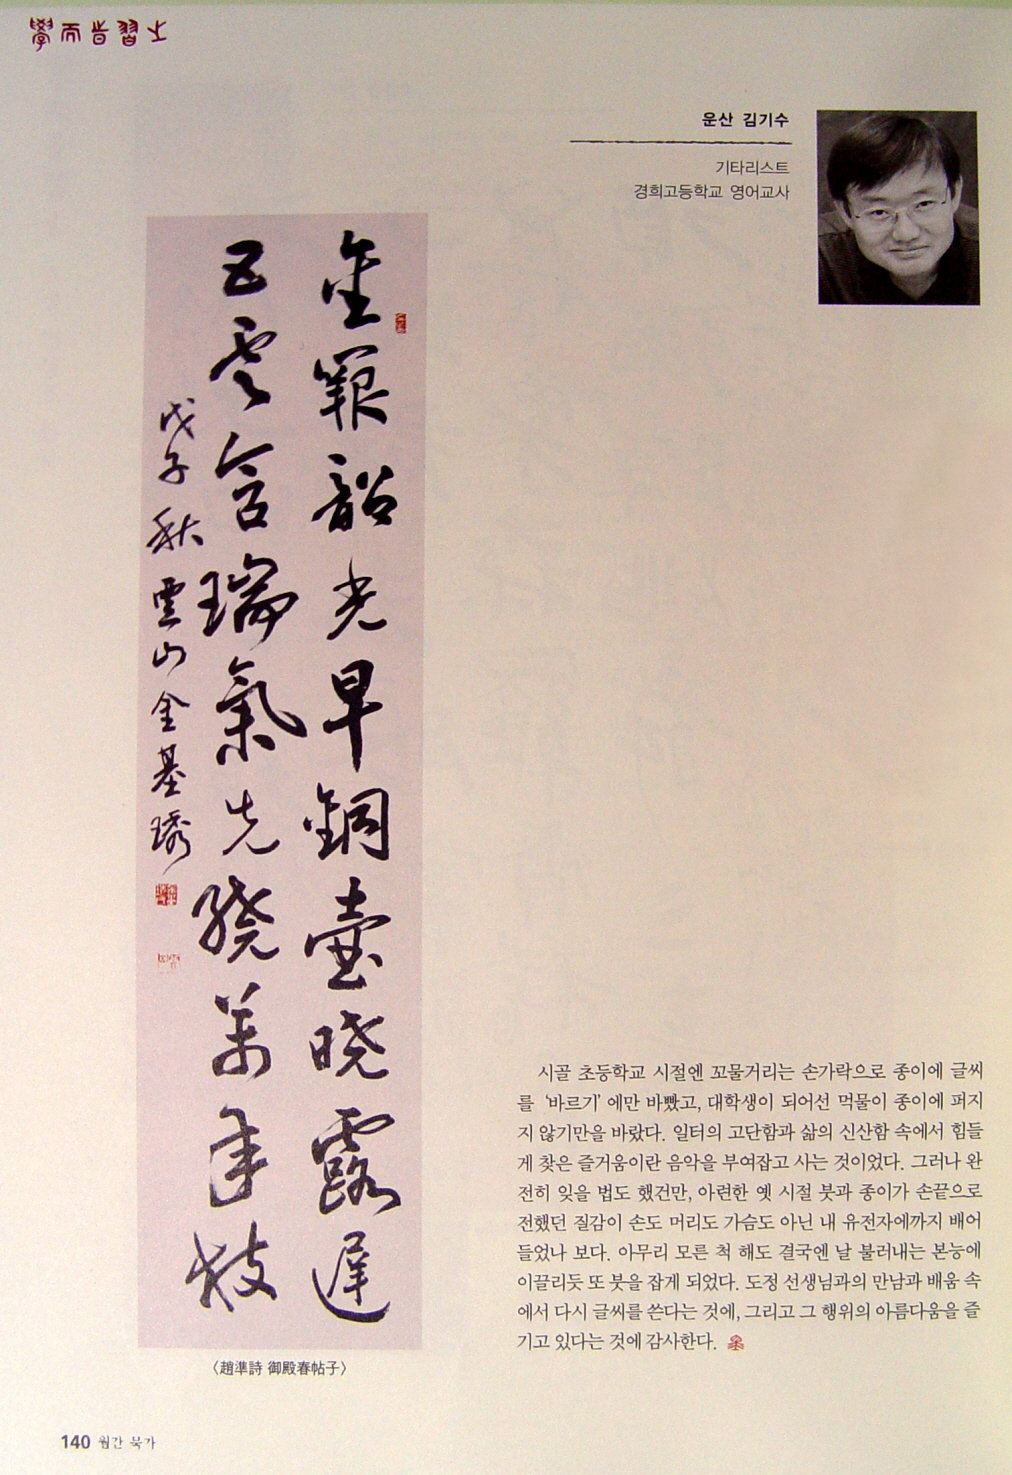 學而時習之
운산 김기수
기타리스트
경희고등학교 영어교사
金韶光早銅臺曉露遲
五雲含瑞氣先繞萬年枝
戊子秋 雲山金基琇
시골 초등학교 시절엔 꼬물거리는 손가락으로 종이에 글씨
를 '바르기'에만 바빴고, 대학생이 되어선 먹물이 종이에 퍼지
지 않기만을 바랐다. 일터의 고단함과 삶의 신산함 속에서 힘들
게 찾은 즐거움이란 음악을 부여잡고 사는 것이었다. 그러나 완
전히 잊을 법도 했건만, 아련한 옛 시절 붓과 종이가 손끝으로
전했던 질감이 손도 머리도 가슴도 아닌 내 유전자에까지 배어
들었나 보다. 아무리 모른 척 해도 결국엔 날 불러내는 본능에
이끌리듯 또 붓을 잡게 되었다. 도정 선생님과의 만남과 배움 속
에서 다시 글씨를 쓴다는 것에, 그리고 그 행위의 아름다움을 즐
기고 있다는 것에 감사한다.
〈趙準詩 御殿春帖子〉
140 월간 묵가